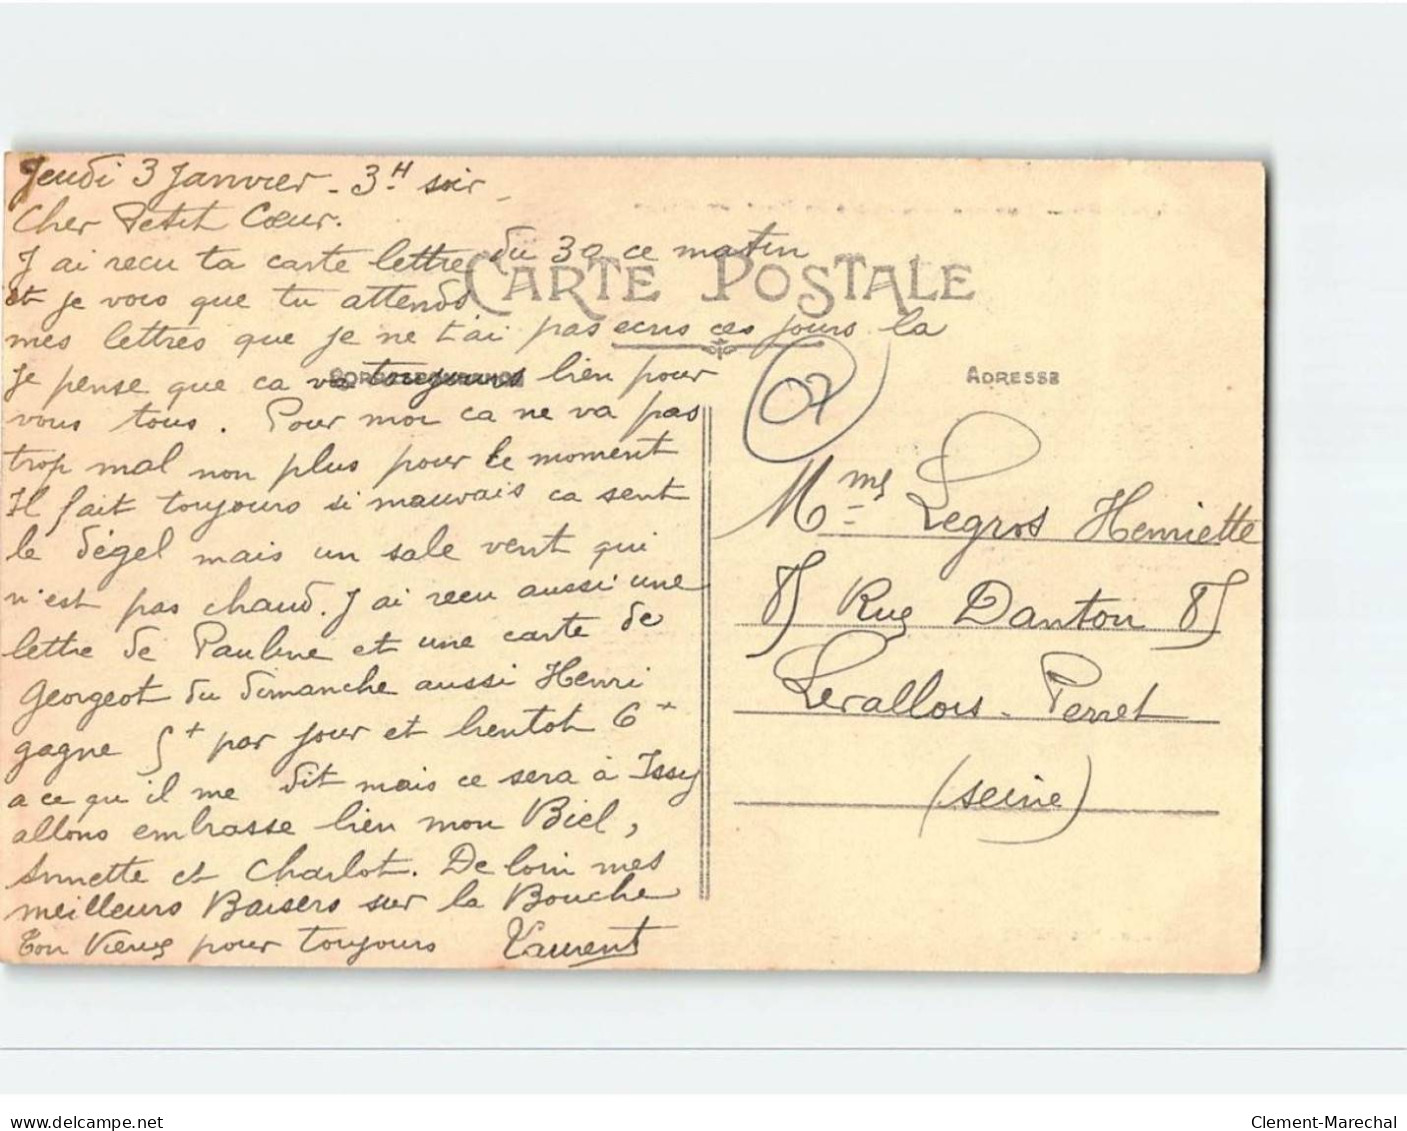 Jeudi 3 Janvier - 3H soir -
Cher Petit Cœur.
J ai recu ta carte lettre du 30 ce matin
et je vois que tu attends
mes lettres que je ne t'ai pas ecris ces jours la
je pense que ca va toujours bien pour
vous tous. Pour moi ca ne va pas
trop mal non plus pour le moment
Il fait toujours si mauvais ca sent
le dégel mais un sale vent qui
n'est pas chaud. J ai recu aussi une
lettre de Pauline et une carte de
Georgeot du dimanche aussi Henri
gagne 5+ par jour et bientot 6+
a ce qu il me dit mais ce sera à Issy
allons embrasse bien mon Biel,
Annette et Charlot. De loin mes
meilleurs Baisers sur la Bouche
Ton Vieux pour toujours Laurent
CARTE POSTALE
ADRESSE
07
Mme Legros Henriette
85 Rue Danton 85
Levallois - Perret
(Seine)
www.delcampe.net
Clement-Marechal